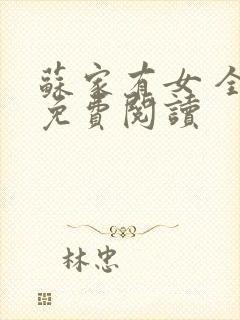 蘇家有女 全
免費閱讀
林忠